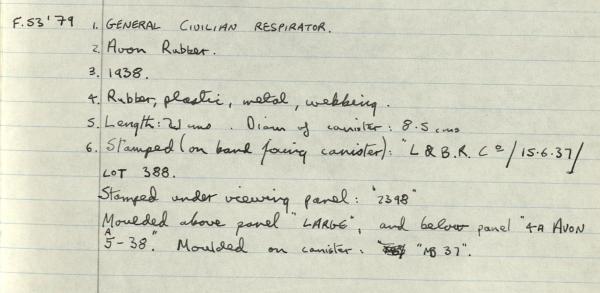 F.53'79 1. GENERAL CIVILIAN RESPIRATOR.
2. Avon Rubber.
3. 1938.
4. Rubber, plastic, metal, webbing.
5. Length: cms. Diam of canister: 8.5 cms
6. Stamped (on band facing canister): "L & B.R. Co/15.6.37/
LOT 388.
Stamped under viewing panel: "2398"
Moulded above panel "LARGE", and below panel "4A AVON
A
5-38". Moulded on canister: "MB 37".